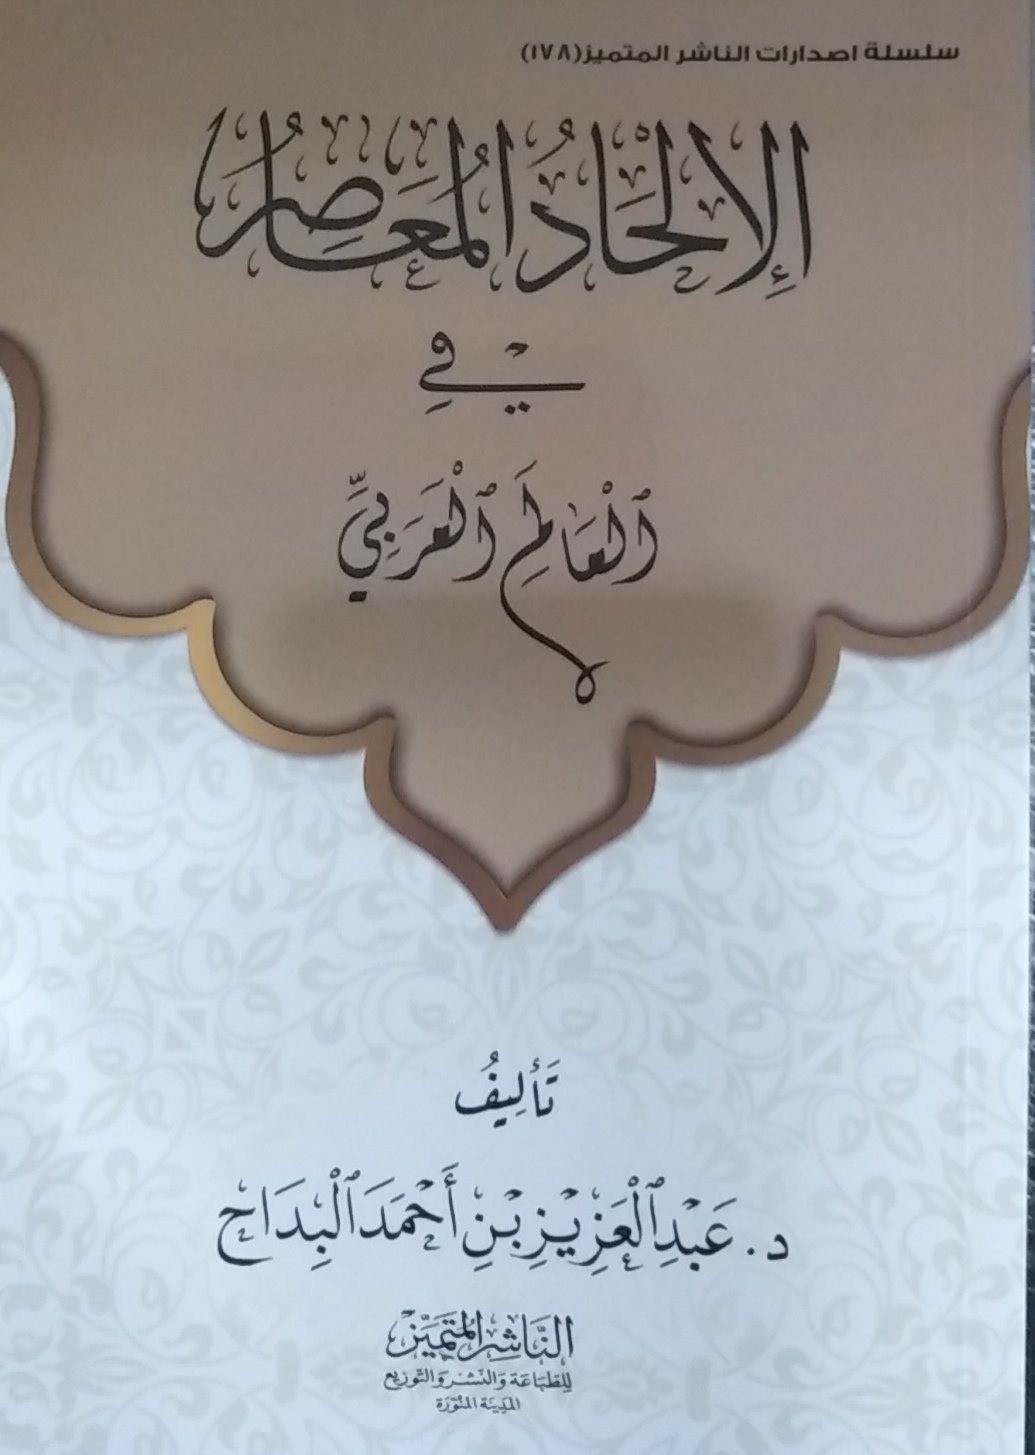 سلسلة اصدارات الناشر المتميز(١٧٨)
الإِلْحَادُ المُعَاصِر
فِي
الْعَالَمِ الْعَرَبِيِّ
تَأْلِيفُ
د. عَبْدِ الْعَزِيزِ بْنِ أَحْمَدَ الْبِدَاح
النَّاشِر المُتَمَيِّز
لِلطِّبَاعَة وَالنَّشْر وَالتَّوْزِيع
المَدِينَة المُنَوَّرَة